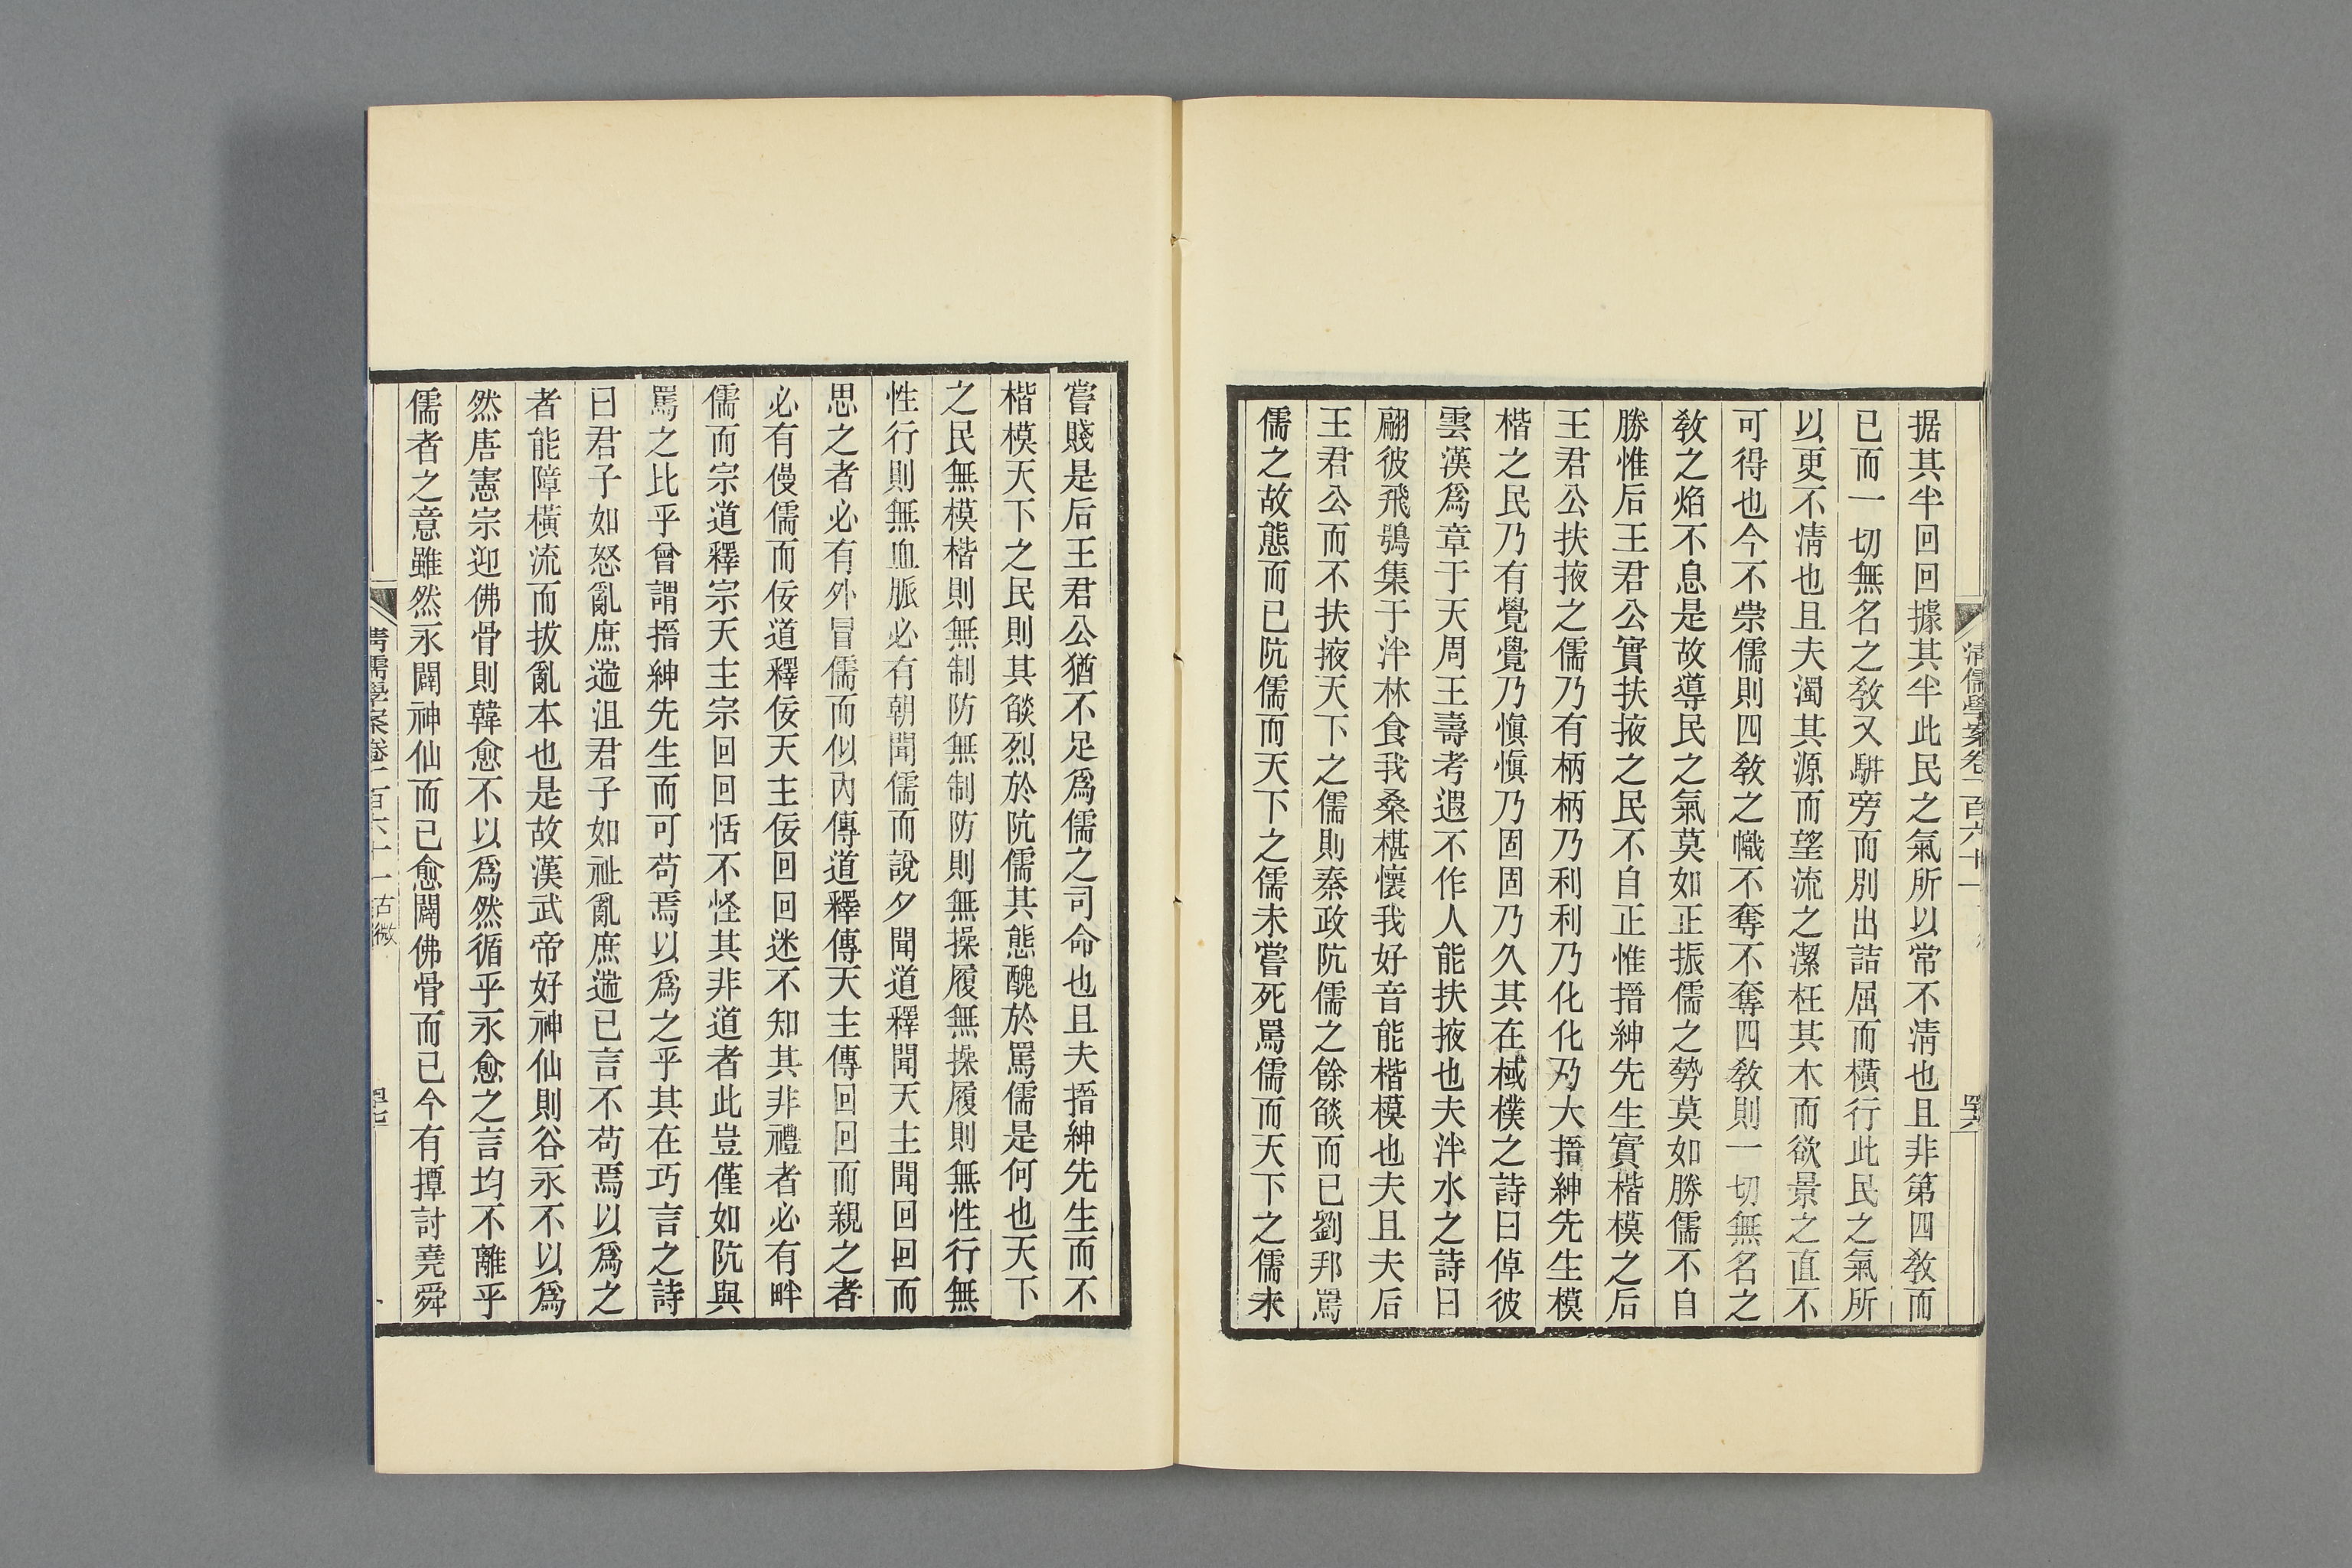 据其半回回據其半此民之氣所以常不淸也且非第四敎而
已而一切無名之敎又駢旁而別出詰屈而橫行此民之氣所
以更不淸也且夫濁其源而望流之潔枉其木而欲景之直不
可得也今不崇儒則四敎之幟不奪不奪四敎則一切無名之
敎之焰不息是故導民之氣莫如正振儒之勢莫如勝儒不自
勝惟后王君公實扶掖之民不自正惟搢紳先生實楷模之后
王君公扶掖之儒乃有柄柄乃利利乃化化乃大搢紳先生模
楷之民乃有覺覺乃愼愼乃固固乃久其在棫樸之詩曰倬彼
雲漢爲章于天周王壽考遐不作人能扶掖也夫泮水之詩曰
翩彼飛鴞集于泮林食我桑椹懷我好音能楷模也夫且夫后
王君公而不扶掖天下之儒則秦政阬儒之餘燄而已劉邦罵
儒之故態而已阬儒而天下之儒未嘗死罵儒而天下之儒未
清儒學案卷二百六十一
四六
嘗賤是后王君公猶不足爲儒之司命也且夫搢紳先生而不
楷模天下之民則其燄烈於阬儒其態醜於罵儒是何也天下
之民無模楷則無制防無制防則無操履無操履則無性行無
性行則無血脈必有朝聞儒而說夕聞道釋聞天主聞回回而
思之者必有外冒儒而似內傳道釋傳天主傳回回而親之者
必有儓儒而佞道釋佞天主佞回回迷不知其非禮者必有畔
儒而宗道釋宗天主宗回回恬不怪其非道者此豈僅如阬與
罵之比乎曾謂搢紳先生而可苟焉以爲之乎其在巧言之詩
曰君子如怒亂庶遄沮君子如祉亂庶遄已言不苟焉以爲之
者能障橫流而拔亂本也是故漢武帝好神仙則谷永不以爲
然唐憲宗迎佛骨則韓愈不以爲然循乎永愈之言均不離乎
儒者之意雖然永闢神仙而已愈闢佛骨而已今有撢討堯舜
清儒學案卷二百六十一 古微
四七